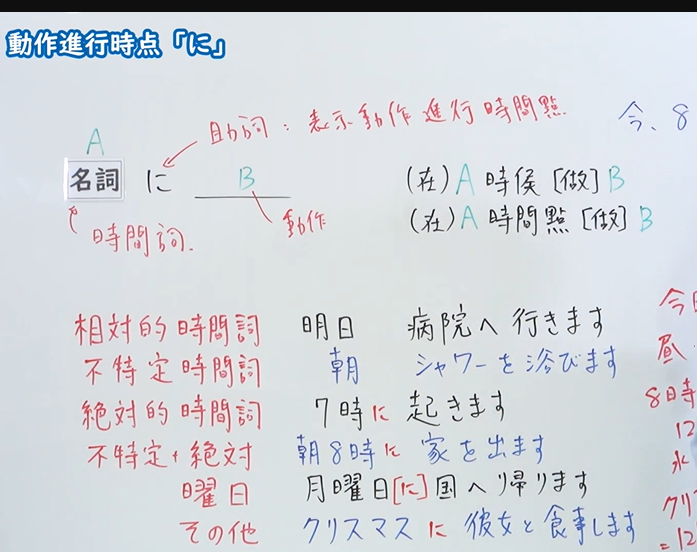 動作進行時点「に」
A
助詞：表示動作進行時間點
今、8
名詞 に B
(在)A時侯[做]B
動作
(在)A時間點[做]B
時間詞.
相対的時間詞 明日 病院へ行きます
不特定時間詞 朝 シャワーを浴びます
絶対的時間詞 7時に 起きます
不特定+絶対 朝8時に 家を出ます
曜日 月曜日[に]国へ帰ります
その他 クリスマスに 彼女と食事します
昼
8時
12
水
クリ
=12